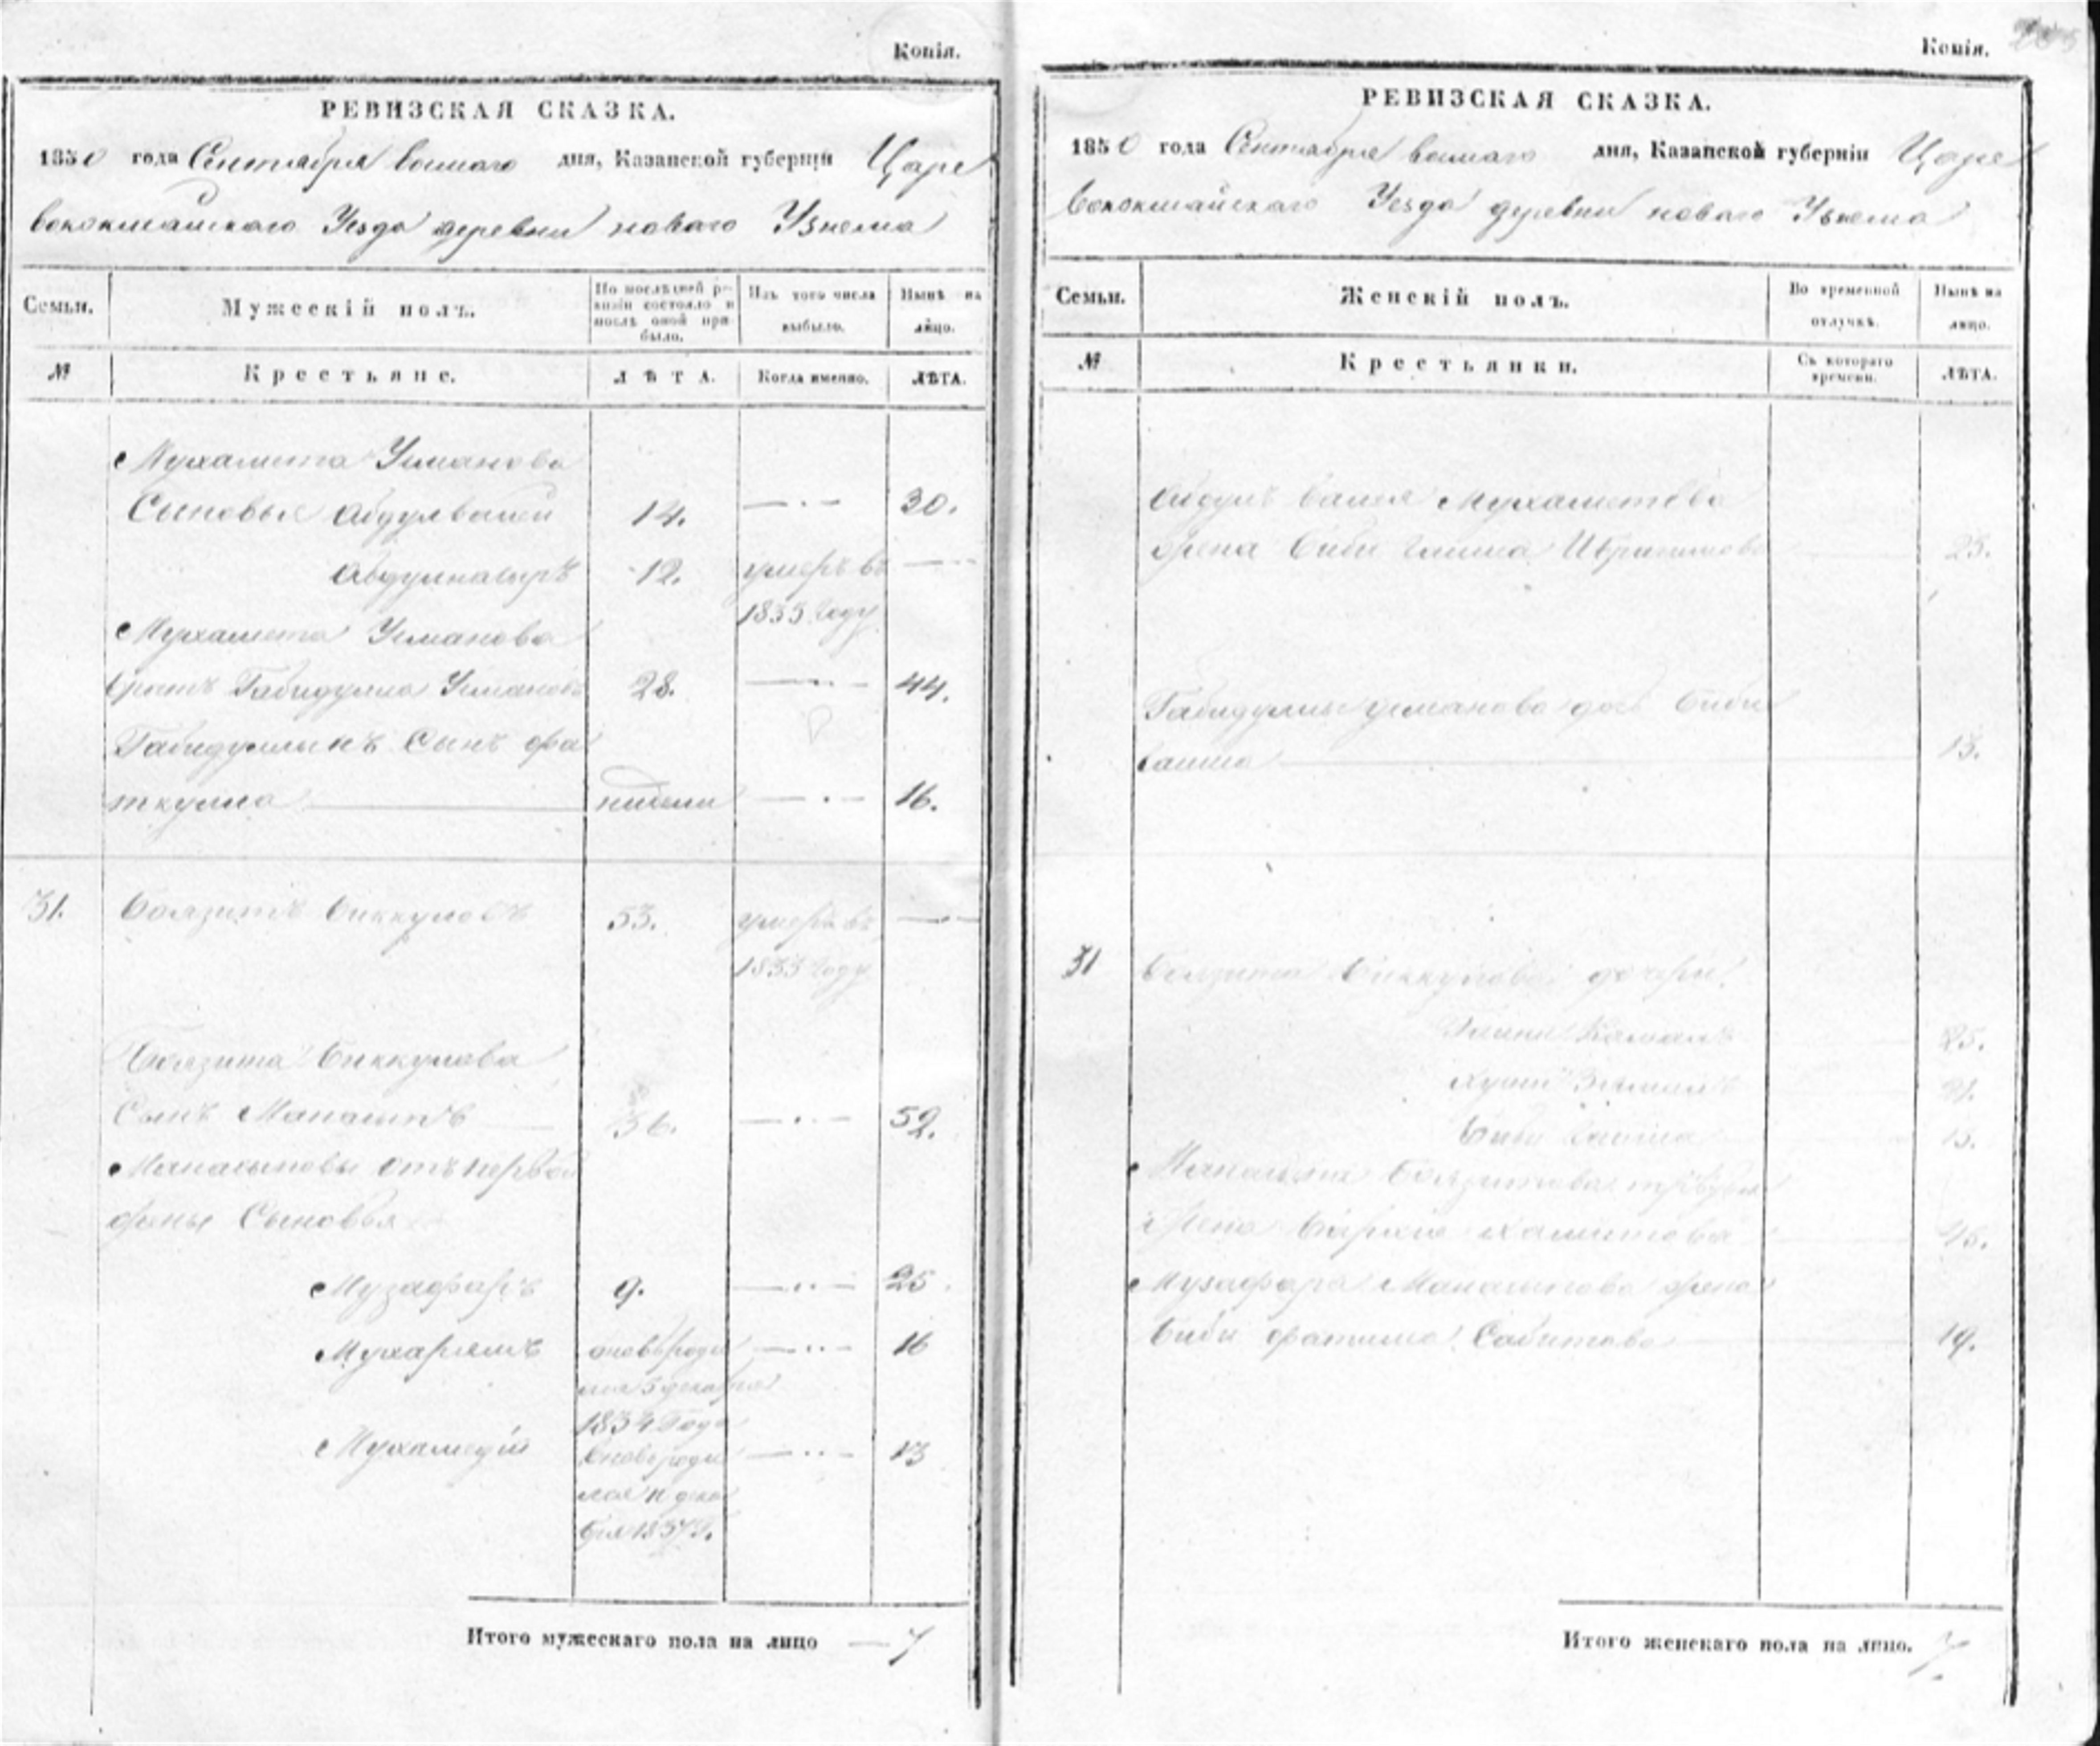 Копія.
РЕВИЗСКАЯ СКАЗКА.
1850 года Сентября дня, Казанской губерніи Царе
вококшайскаго Уезда деревни новаго Узюма
Семьи.
Мужескій полъ.
По послѣдней ре-
визіи состояло и
послѣ оной при-
было.
Изъ того числа
выбыло.
Нынѣ на
лицо.
№
Крестьяне.
ЛѢТА.
Когда именно.
ЛѢТА.
Мухамета Усманова
Сыновья Абдулвалей 14. 30.
Абдулнасыръ 12. умеръ въ
1835 году
Мухамета Усманова
братъ Габидулла Усмановъ 28. 44.
Габидуллинъ Сынъ фа
ткулла недели 16.
31. Баязитъ Биккуловъ 53. умеръ въ
1833 году
Баязита Биккулова
Сынъ Манасыпъ 36. 52.
Манасыповы отъ первой
жены Сыновья
Музафаръ 9. 25.
Мухарямъ вновь роди 16
лся 5 декабря
1834 Года
Мухамедій вновь роди 13
лся 11 дека
бря 1837 г.
Итого мужескаго пола на лицо 7
Копія.
РЕВИЗСКАЯ СКАЗКА.
1850 года Сентября дня, Казанской губерніи Царе
вококшайскаго Уезда деревни новаго Узюма
Семьи.
Женскій полъ.
Во временной
отлучкѣ.
Нынѣ на
лицо.
№
Крестьянки.
Съ котораго
времени.
ЛѢТА.
Абдулъ Валея Мухаметова
жена Биби Ибрагимова 23.
Габидуллы Усманова дочь Биби
13.
31 Баязита Биккулова дочери
Камалъ 25.
21.
Биби 15.
Манасыпа Баязитова
жена Хамитова 45.
Музафара Манасыпова жена
Биби фатима Сабитова 19.
Итого женскаго пола на лицо. 7.